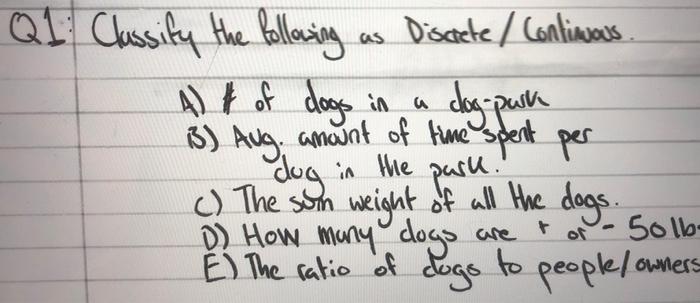 Q1: Classify the following as Discrete / Continuous.
A) # of dogs in a dog-park
B) Avg. amount of time spent per
dog in the park.
C) The sum weight of all the dogs.
D) How many dogs are + or - 50lb.
E) The ratio of dogs to people/owners